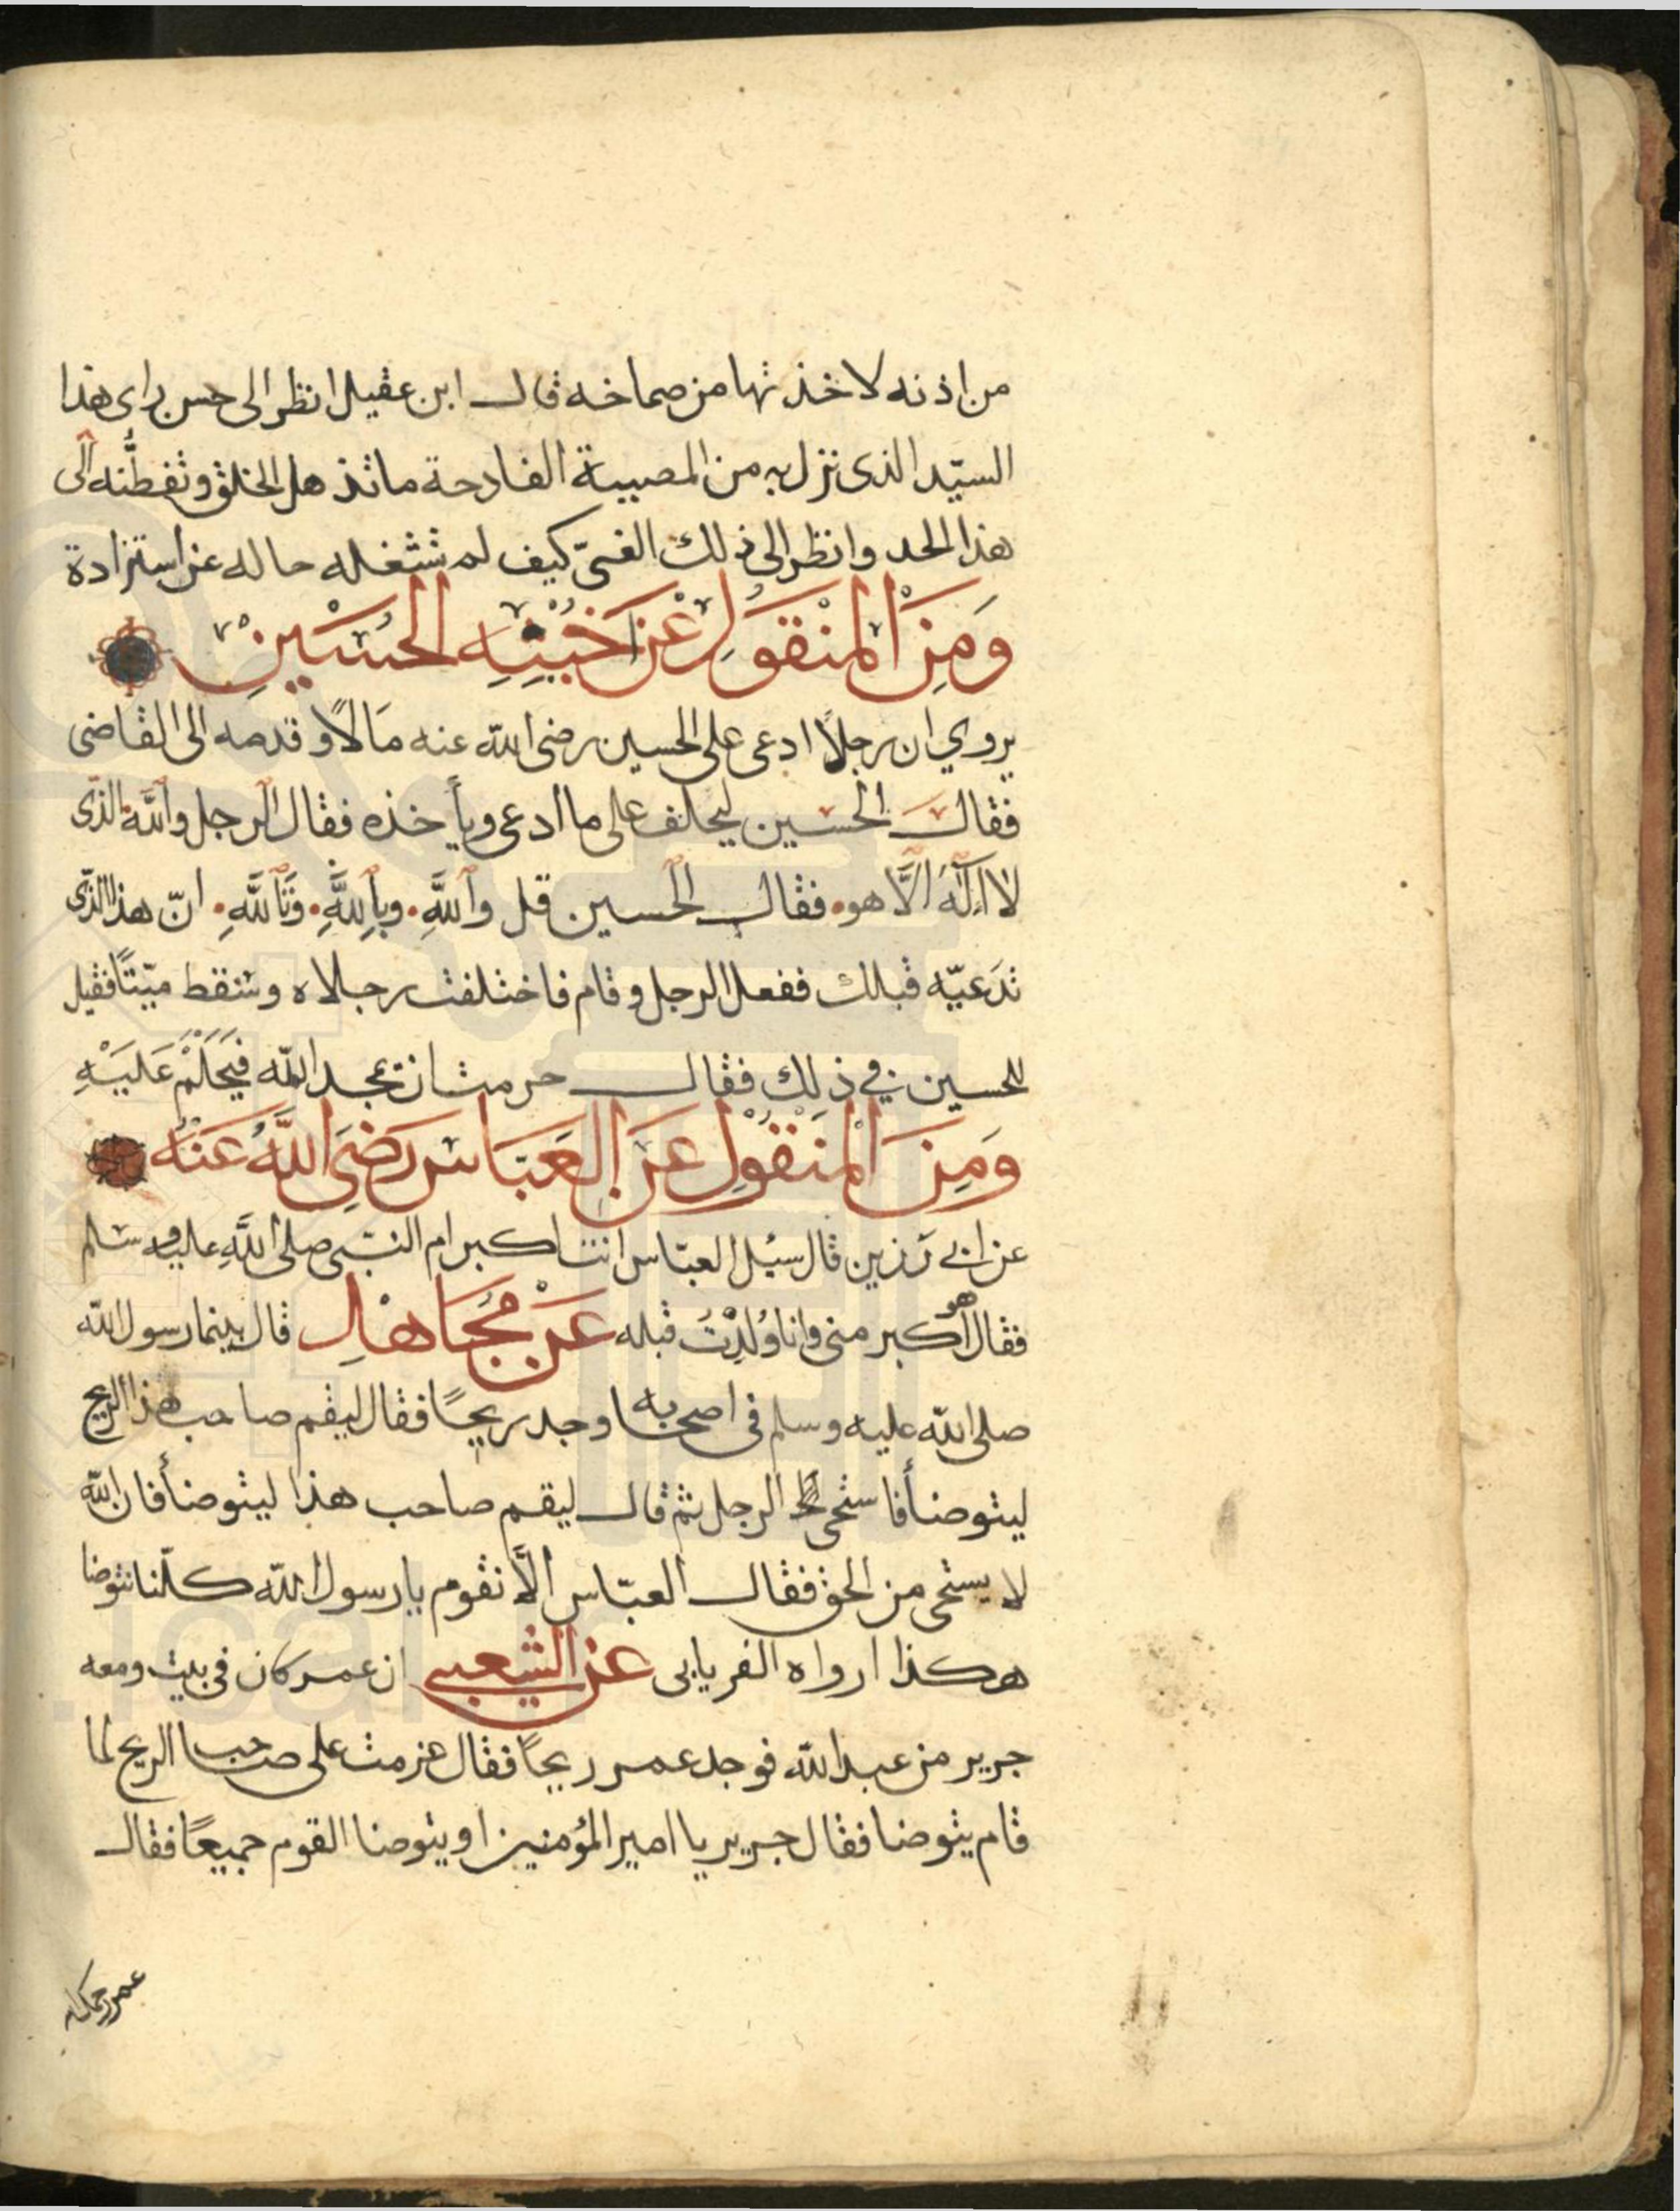 من اذنه لاخذتها من صماخه قال ابن عقيل انظر الى حسن راى هذا
السيّد الذى نزل به من المصيبة الفادحة ما تذهل الخلق وتفطّنه الى
هذا الحد وانظر الى ذلك الغنىّ كيف لم تشغله حاله عن استزادة
وَمِنَ المنْقوَلِ عَن اَخيْهِ الحسَيْنِ
يروي ان رجلاً ادعى على الحسين رضى الله عنه مَالاً وقدمه الى القاضى
فقال الحسين ليحلف على ما ادعى ويأخذه فقال الرجل والله الذى
لا اله الّا هو. فقال الحسين قل واللهِ. وباللهِ. وتَاللهِ. انّ هذا الذى
تدَعيّه قبلك ففعل الرجل وقام فاختلفت رجلاه وسقط ميّتاً فقيل
للحسين في ذلك فقال خرمت ان تمجد الله فيَحَلَمْ عَليَهْ
وَمِنَ المنَقْولِ عَن العَبّاس رَضِيَ اللهُ عَنهُ
عن ابي رَزين قال سئل العبّاس انت اكبر ام النبى صلى اللهِ عليه وسلم
فقال هو اكبر منى وانا وُلِدْتُ قبله عَنْ مُجَاهدِ قال بينما رسول الله
صلى الله عليه وسلم فى اصحابه اوجد ريحًا فقال ليقم صاحب هذا الريح
ليتوضأ فاستحى الرجل ثم قال ليقم صاحب هذا ليتوضأ فان الله
لا يستحى من الحق فقال العبّاس الّا نقوم يا رسول الله كلّنا نتوضا
هكذا ارواه الفريابى عن الشعبي ان عمر كان فى بيت ومعه
جرير من عبد الله فوجد عمر ريحًا فقال عزمت على صاحب الريح لما
قام يتوضا فقال جرير يا امير المؤمنين او يتوضا القوم جميعًا فقال
عمر رحمك الله